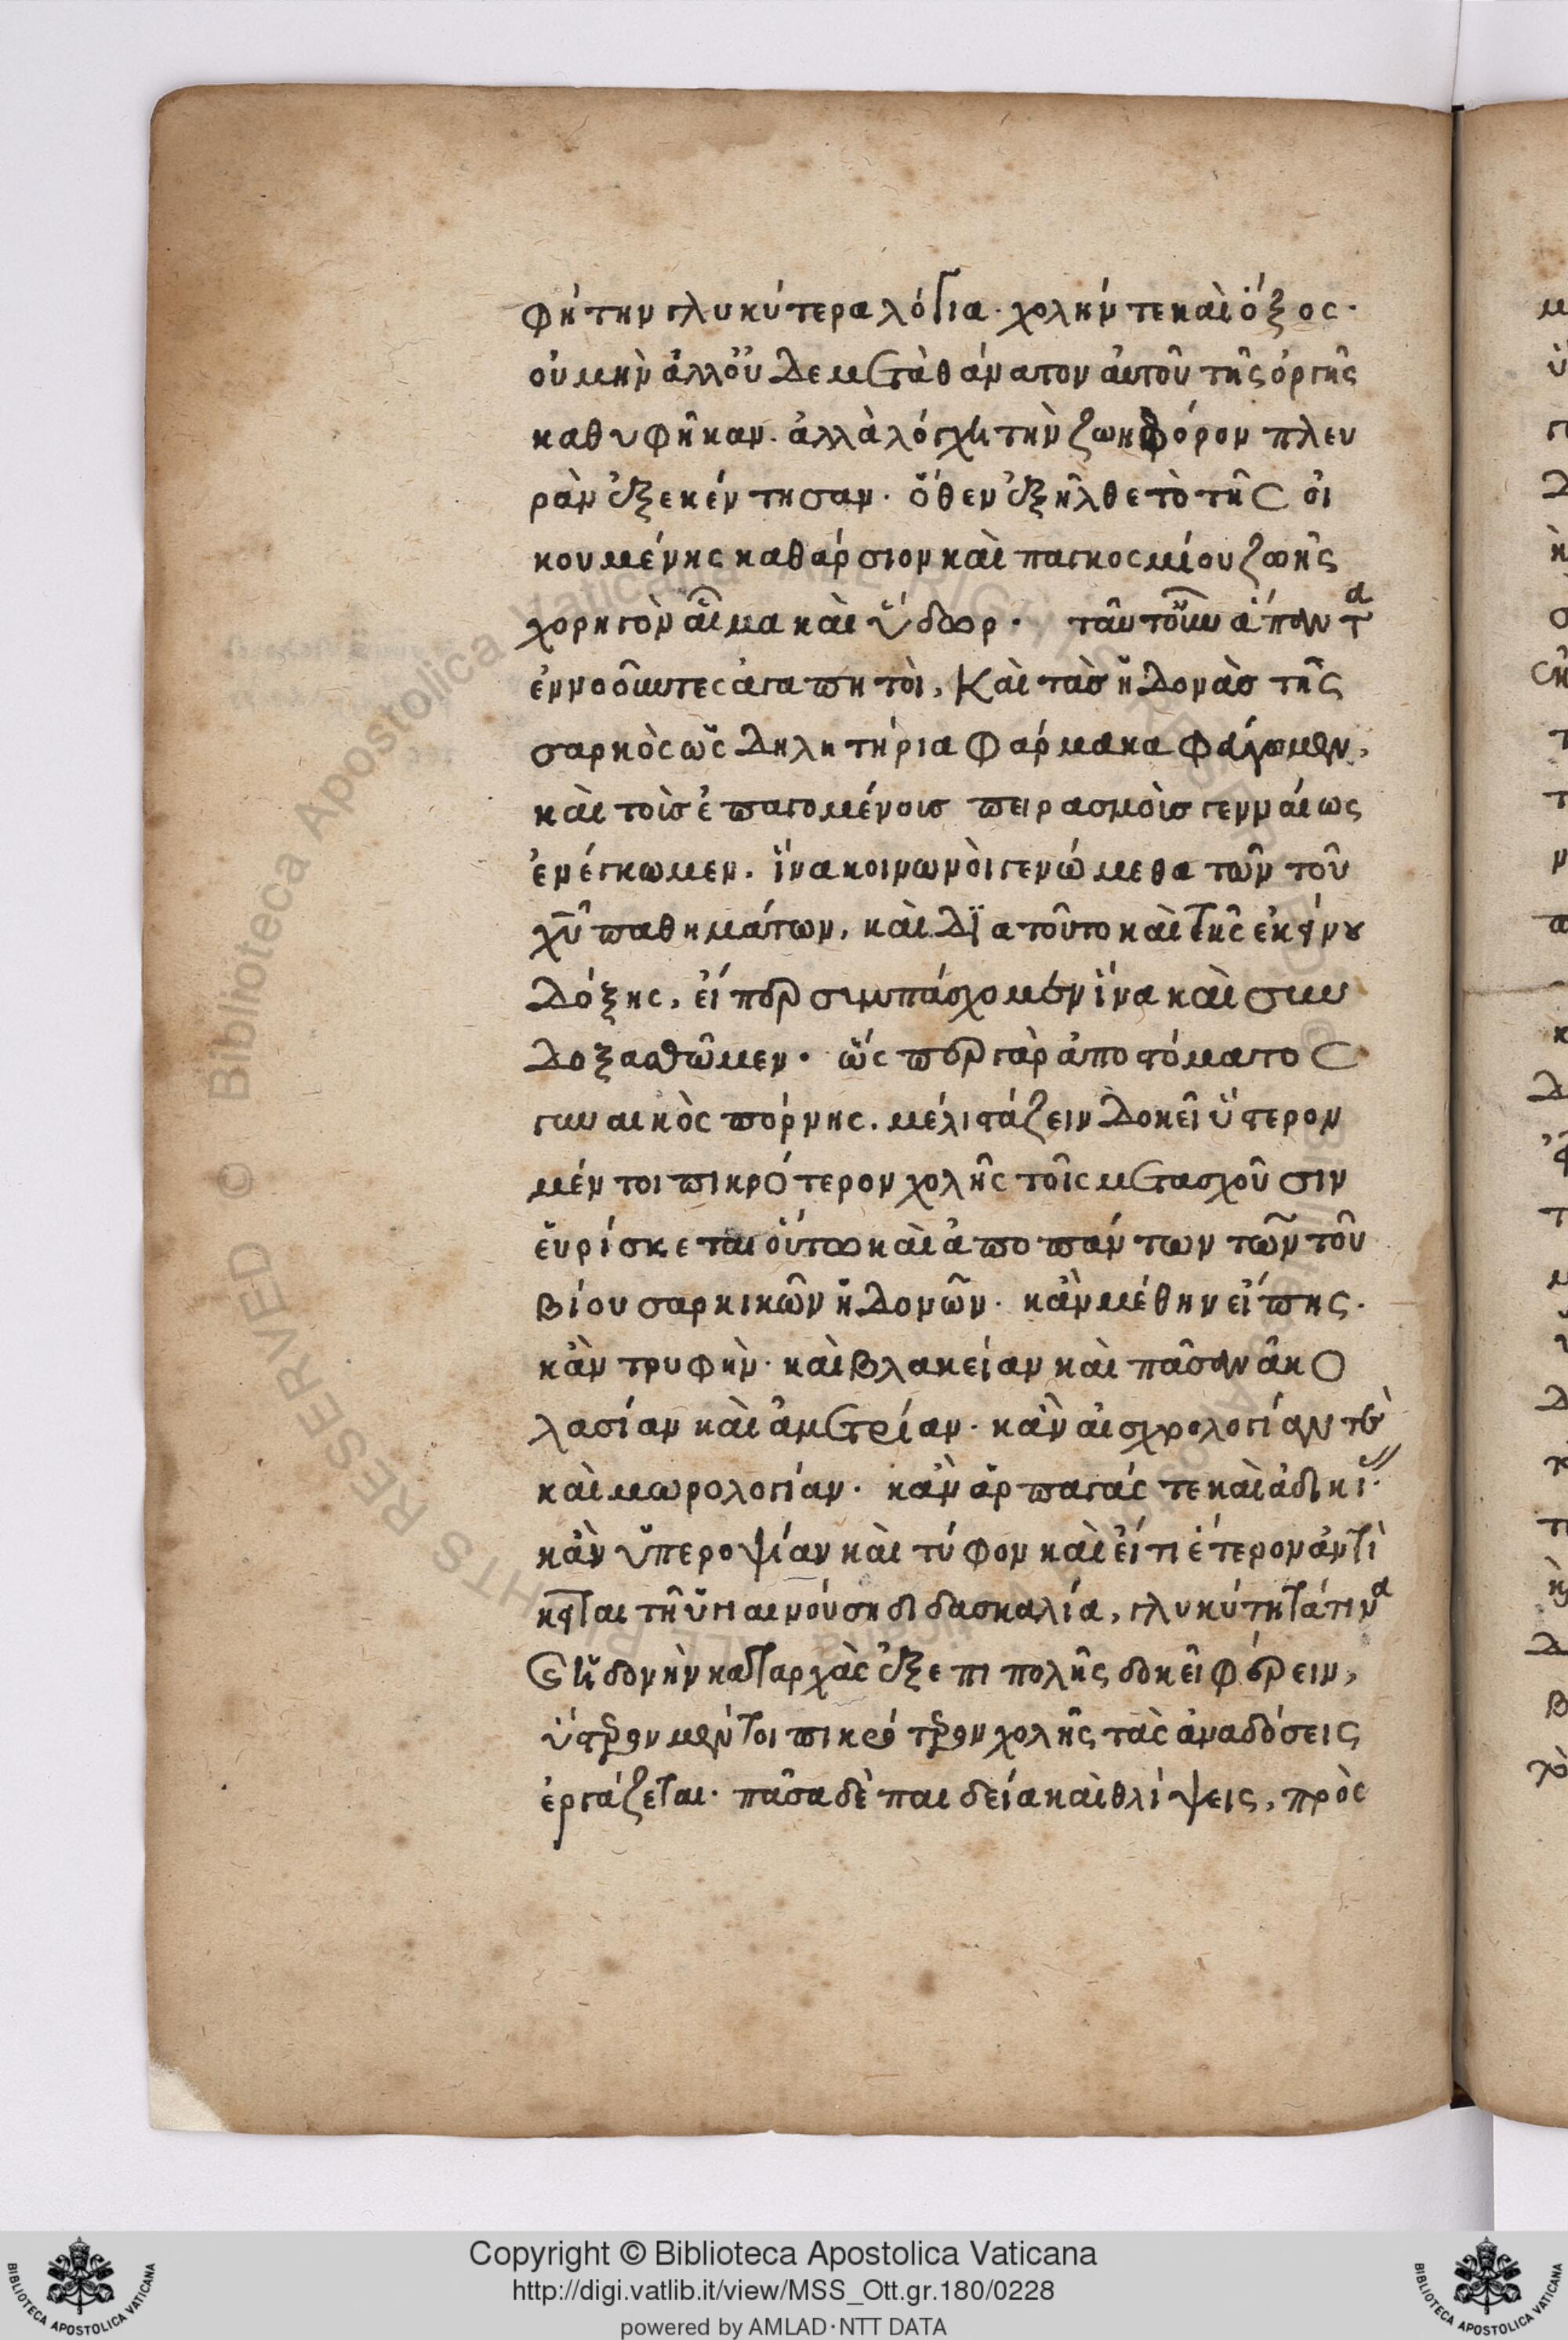 φήτην γλυκύτερα λόγια· χολήν τε καὶ ὄξος·
οὐ μὴν ἀλλ' οὐδὲ μετὰ θάνατον αὐτοῦ τῆς ὀργῆς
καθυφῆκαν· ἀλλὰ λόγχη τὴν ζωηφόρον πλευ
ρὰν ἐξεκέντησαν· ὅθεν ἐξῆλθε τὸ τῆς οἰ
κουμένης καθάρσιον καὶ παγκοσμίου ζωῆς
χορηγὸν αἷμα καὶ ὕδωρ· ταῦτ' οὖν ἅπαντα
ἐννοοῦντες ἀγαπητοὶ, Καὶ τὰς ἡδονὰς τῆς
σαρκὸς ὡς δηλητήρια φάρμακα φύγωμεν,
καὶ τοῖς ἐπαγομένοις πειρασμοῖς γενναίως
ἐνέγκωμεν. ἵνα κοινωνοὶ γενώμεθα τῶν τοῦ
χυ παθημάτων, καὶ διατοῦτο καὶ τῆς ἐκείνου
δόξης, εἴπερ συμπάσχομεν ἵνα καὶ συν
δοξασθῶμεν· ὥσπερ γὰρ ἀπὸ στόματος
γυναικὸς πόρνης. μέλι στάζειν δοκεῖ ὕστερον
μέντοι πικρότερον χολῆς τοῖς μετασχοῦσιν
εὑρίσκεται οὕτω καὶ ἀπὸ πάντων τῶν τοῦ
βίου σαρκικῶν ἡδονῶν· κἂν μέθην εἴπης·
κἂν τρυφὴν· καὶ βλακείαν καὶ πᾶσαν ἀκο
λασίαν καὶ ἀμετρίαν· κἂν αἰσχρολογίαν τὲ
καὶ μωρολογίαν· κἂν ἁρπαγάς τε καὶ ἀδικί·
κἂν ὑπεροψίαν καὶ τύφον καὶ εἴτι ἕτερον ἀντὶ
κειται τῆ ὑγιαινούση διδασκαλία, γλυκύτητά τινα
καὶ ἡδονὴν καταρχὰς ἐξεπιπολῆς δοκεῖ φέρειν,
ὕστερον μέντοι πικρότερον χολῆς τὰς ἀναδόσεις
ἐργάζεται· πᾶσα δὲ παιδεία καὶ θλίψεις, πρὸς
Copyright © Biblioteca Apostolica Vaticana
http://digi.vatlib.it/view/MSS_Ott.gr.180/0228
powered by AMLAD·NTT DATA